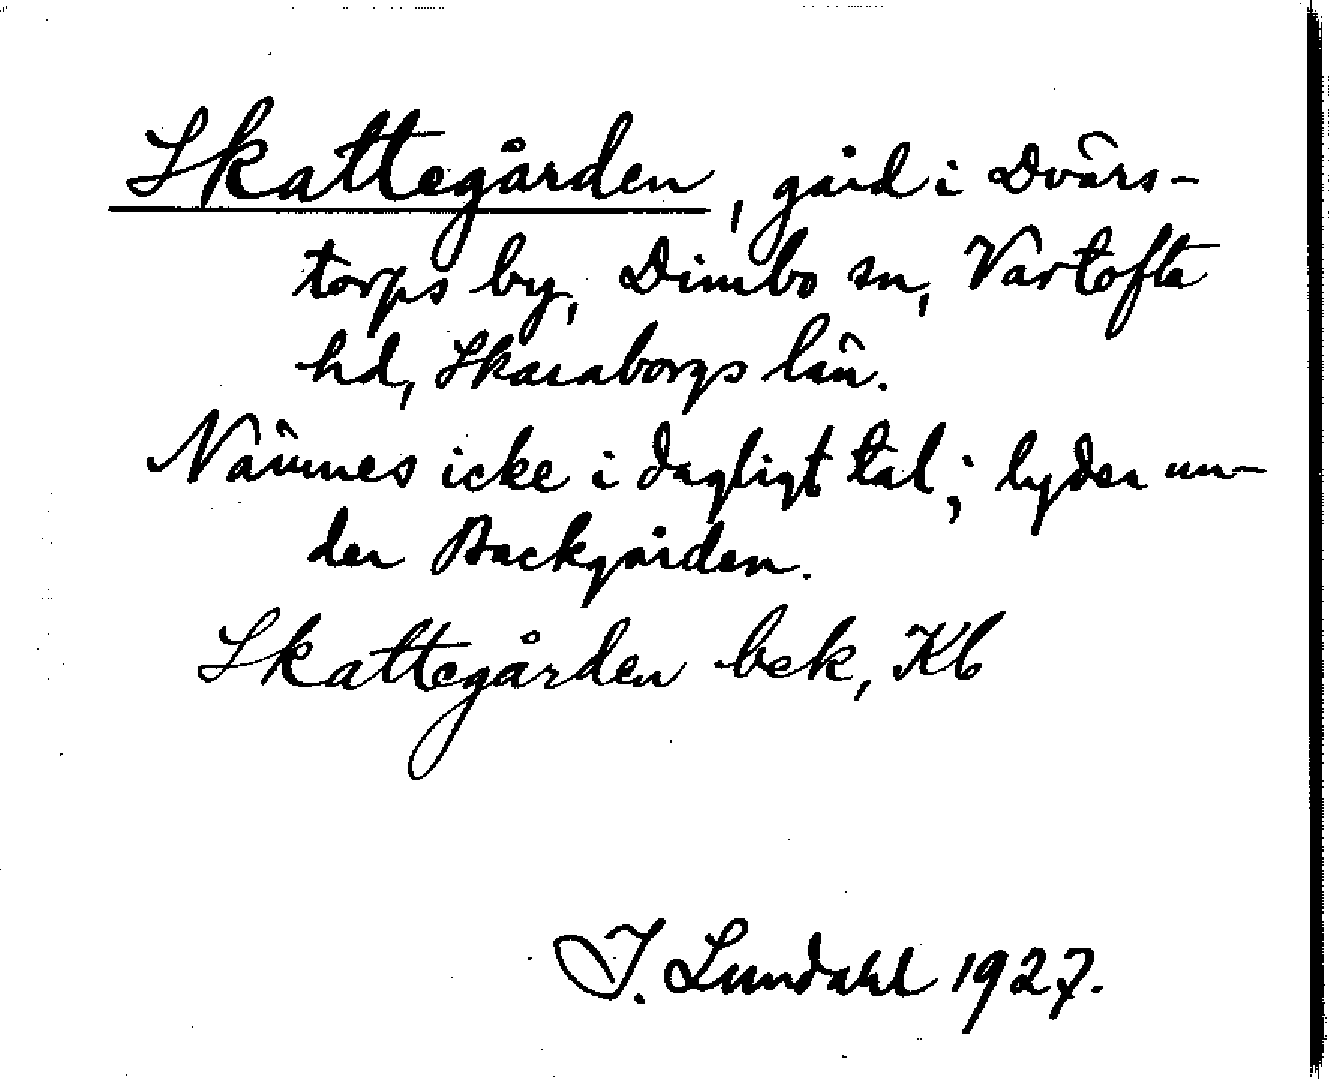 Skattegården, gård i Dvärs-
torps by, Dimbo sn, Vartofta
hd, Skaraborgs län.
Nämnes icke i dagligt tal; lyder un-
der Backgården.
Skattegården bek, Kb
J. Lundahl 1927.